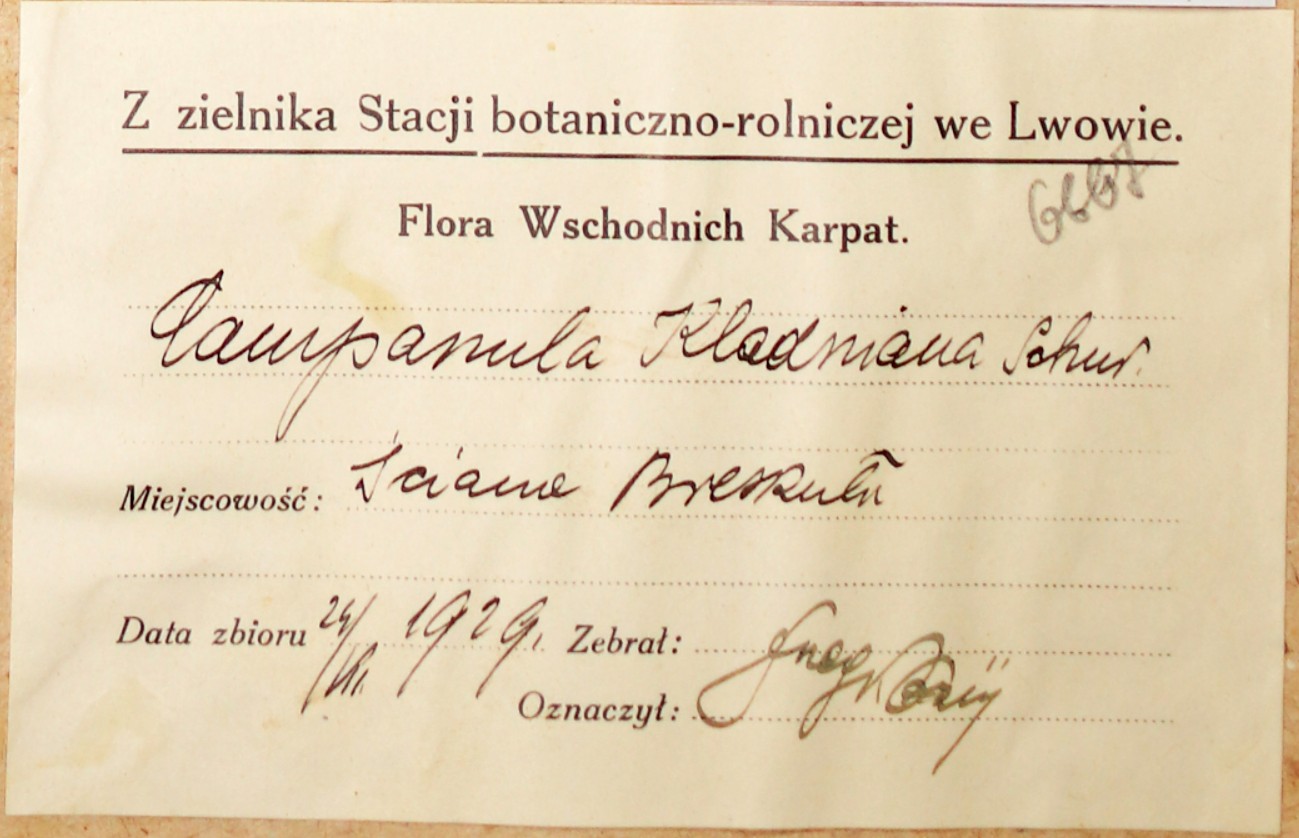 Z zielnika Stacji botaniczno-rolniczej we Lwowie.
6667
Flora Wschodnich Karpat.
Campanula Kladniana Schur.
Miejscowość: Ściana Breskułu
Data zbioru 24/ 1929. Zebrał:
Oznaczył: